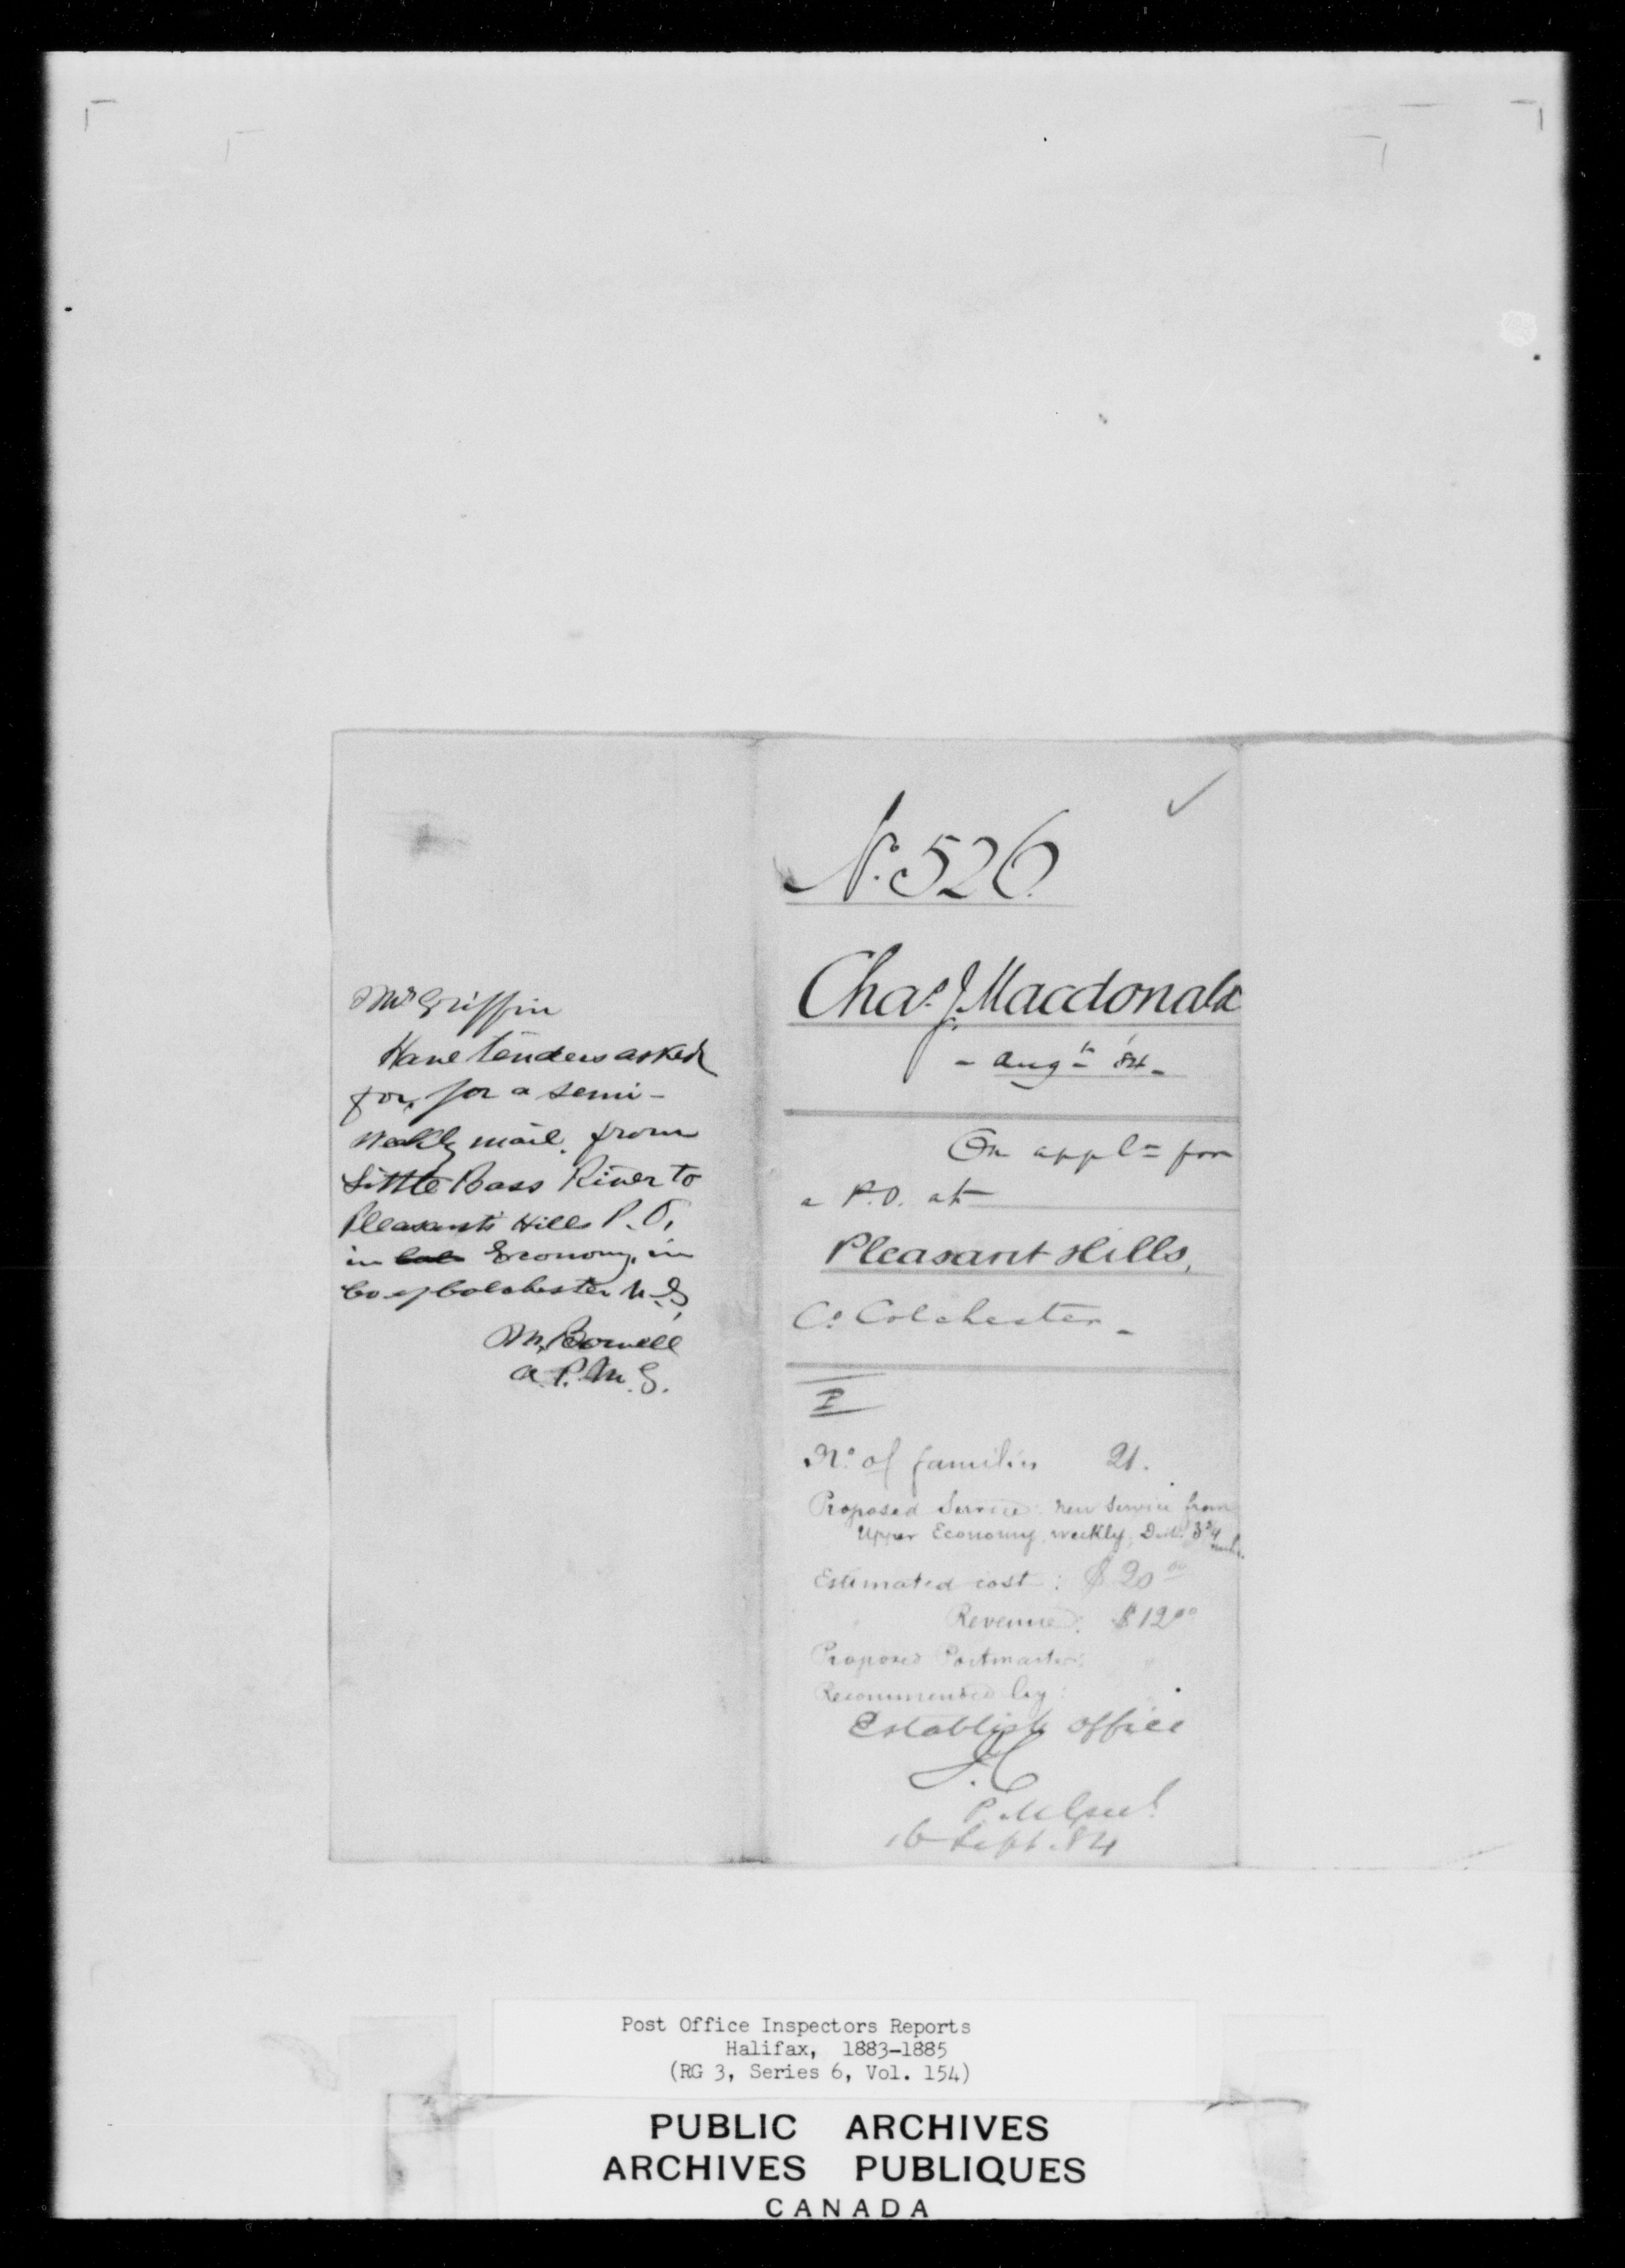 Mr Griffin
Have tenders asked
for, for a semi-
weekly mail, from
Little Bass River to
Pleasant Hills P.O.
in Economy, in
Co of Colchester N.S.
M. Bowell
A.P.M.G.
No. 526.
Chas. J. Macdonald
- Aug - '84 -
On appln for
a P.O. at
Pleasant Hills,
Co Colchester -
I
No. of families 21.
Proposed Service: New Service from
Upper Economy, weekly, Dist. 3 3/4
miles.
Estimated cost: $20 00
Revenue: $12 00
Proposed Postmaster:
Recommended by:
Establish office
J.C.
P.M. Genl
16 Sept. 84
Post Office Inspectors Reports
Halifax, 1883-1885
(RG 3, Series 6, Vol. 154)
PUBLIC ARCHIVES
ARCHIVES PUBLIQUES
CANADA